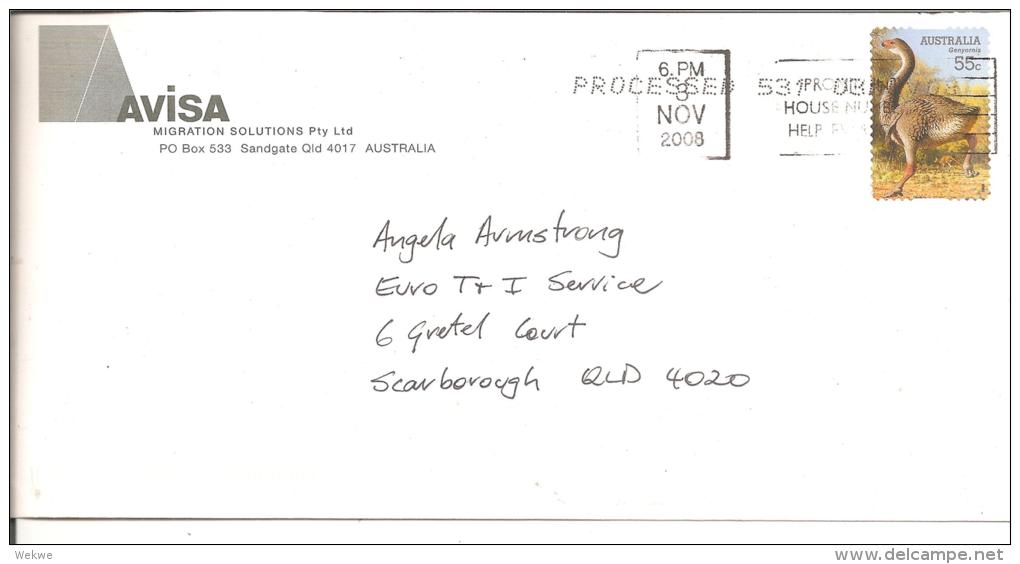 AViSA
MIGRATION SOLUTIONS Pty Ltd
PO Box 533 Sandgate Qld 4017 AUSTRALIA
6. PM
8
NOV
2008
PROCESSED 531
HOUSE
HELP
AUSTRALIA
Genyornis
55c
Angela Armstrong
Euro T+I Service
6 Gretel Court
Scarborough QLD 4020
Wekwe
www.delcampe.net